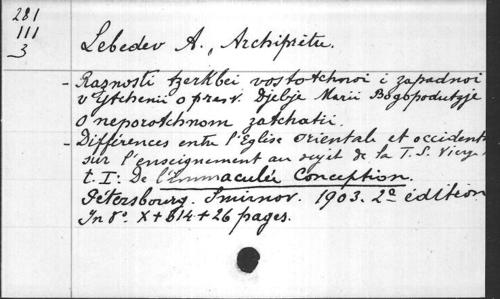 281
111
3
Lebedev A., Archipritu.
- Raznosti tzerkbei vostotchnoi i zapadnoi
v ytchenii o presv. Djebje Marii Bogopodutyje
o neporotchnom zatchatii.
- Différences entre l'Eglise orientale et occident
sur l'enseignement au sujet de la T. S. Vierge
t. I: De l'Immaculée Conception.
Pétersbourg. Smirnov. 1903. 2a édition
In 8o. X+614+26 pages.